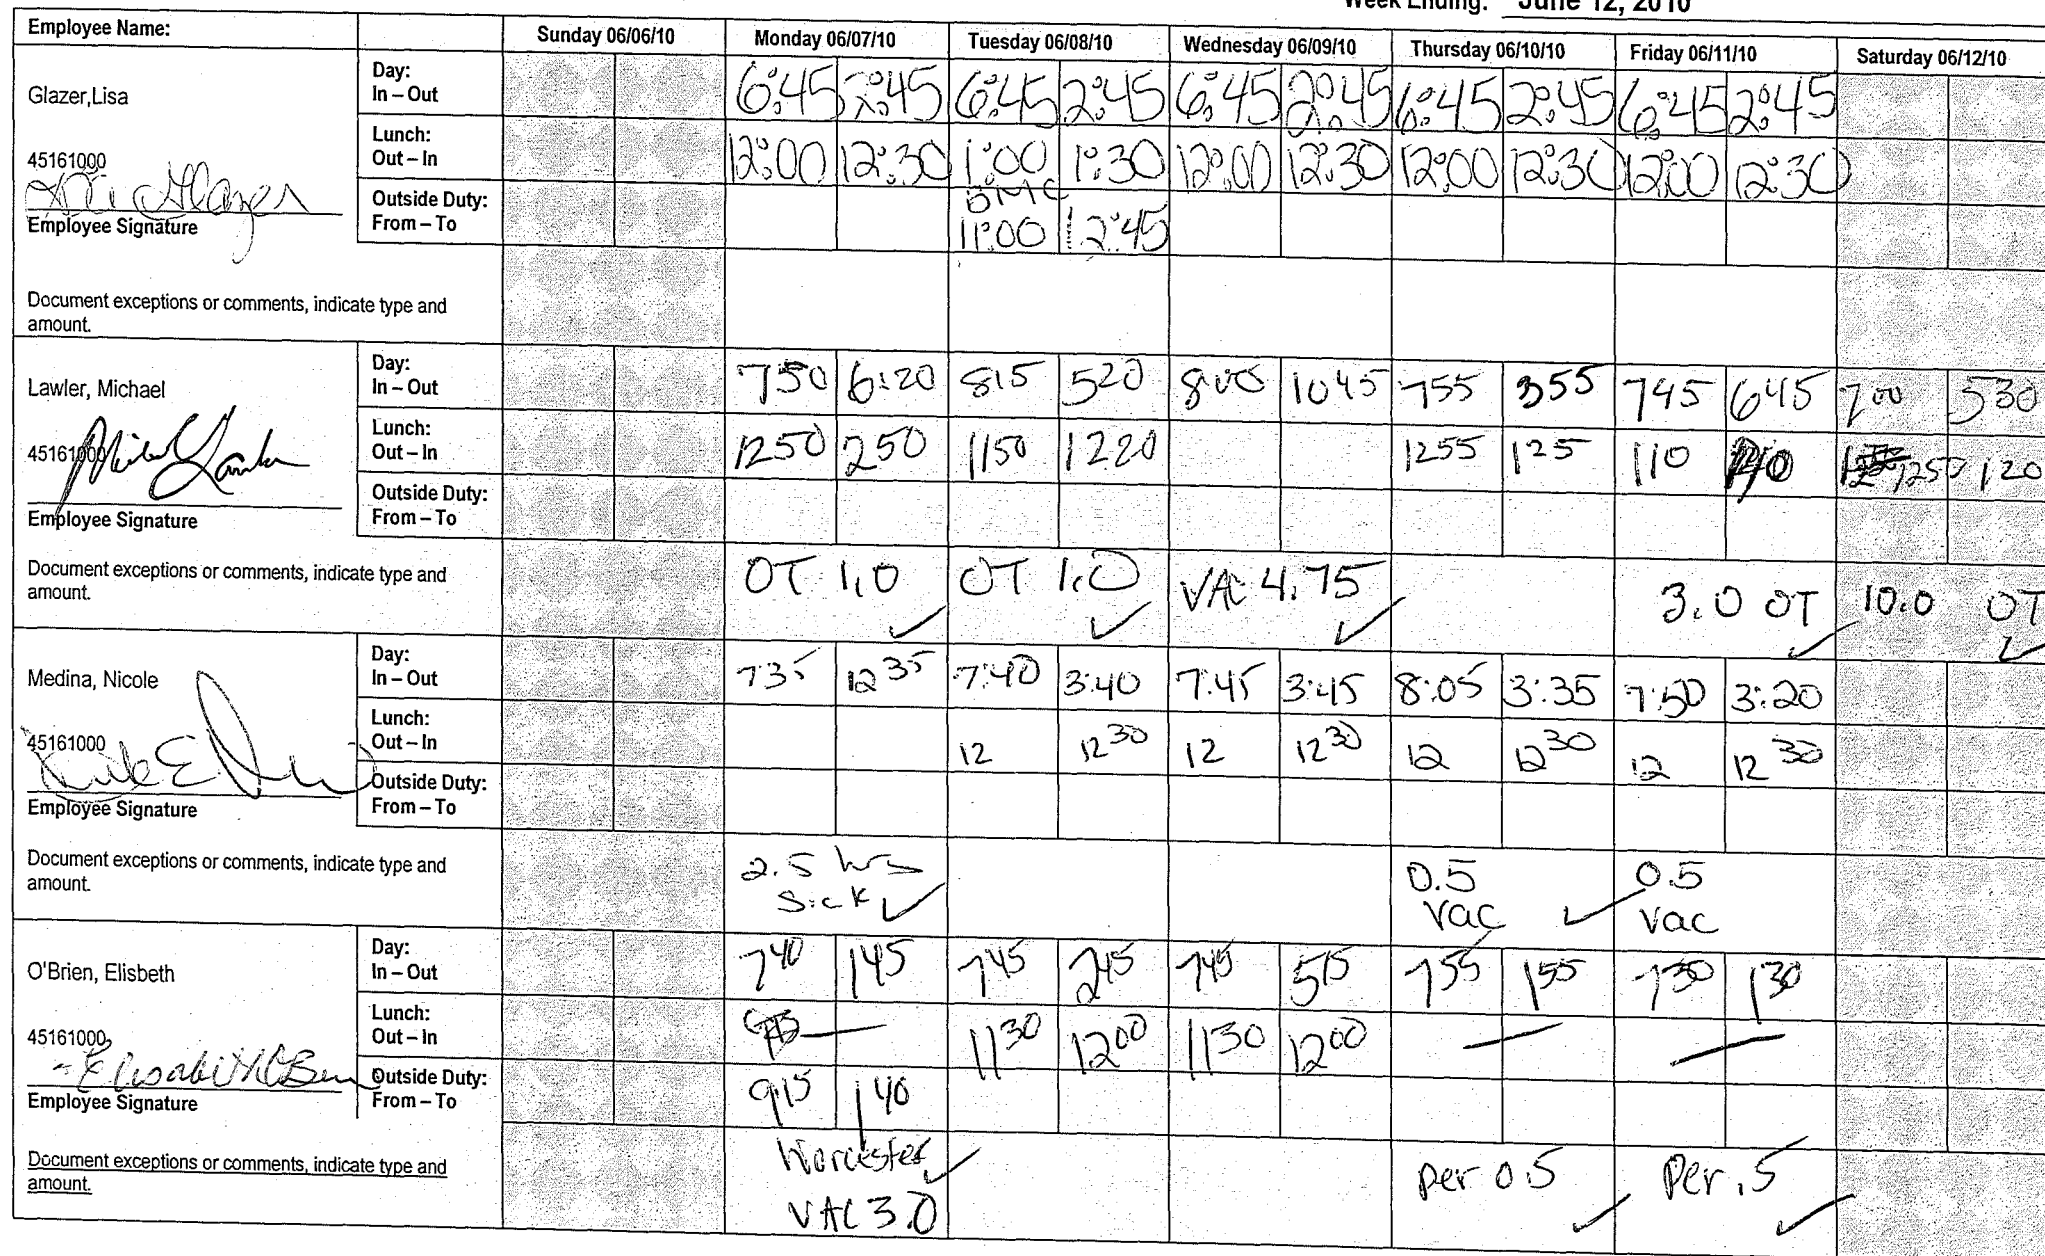 Week Ending: June 12, 2010
Employee Name: Sunday 06/06/10 Monday 06/07/10 Tuesday 06/08/10 Wednesday 06/09/10 Thursday 06/10/10 Friday 06/11/10 Saturday 06/12/10
Glazer,Lisa
Day:
In – Out 6:45 2:45 6:45 2:45 6:45 2:45 6:45 2:45 6:45 2:45
45161000
Lunch:
Out – In 12:00 12:30 1:00 1:30 12:00 12:30 12:00 12:30 12:00 12:30
Employee Signature
Outside Duty: BMC
From – To 11:00 12:45
Document exceptions or comments, indicate type and
amount.
Lawler, Michael
Day:
In – Out 750 6:20 815 520 8:00 1045 755 355 745 645 700 530
45161000
Lunch:
Out – In 1250 250 1150 1220 1255 125 110 1250 120
Employee Signature
Outside Duty:
From – To
Document exceptions or comments, indicate type and
amount.
OT 1.0 OT 1.0 VAC 4.75 3.0 OT 10.0 OT
Medina, Nicole
Day:
In – Out 735 1235 7:40 3:40 7:45 3:45 8:05 3:35 7:50 3:20
45161000
Lunch:
Out – In 12 1230 12 1230 12 1230 12 1230
Employee Signature
Outside Duty:
From – To
Document exceptions or comments, indicate type and
amount.
2.5 hrs 0.5 0.5
Sick Vac Vac
O'Brien, Elisbeth
Day:
In – Out 740 145 745 245 745 515 755 155 730 130
45161000
Lunch:
Out – In 1130 1200 1130 1200
Employee Signature
Outside Duty:
From – To 915 140
Document exceptions or comments, indicate type and
amount.
Worcester Per 0.5 Per .5
VAC 3.0